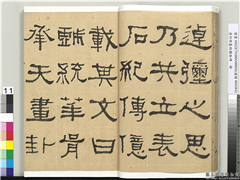 逴彌之思
乃共立表
石紀傳億
載其文曰
戲統華胥
承天畫卦
11